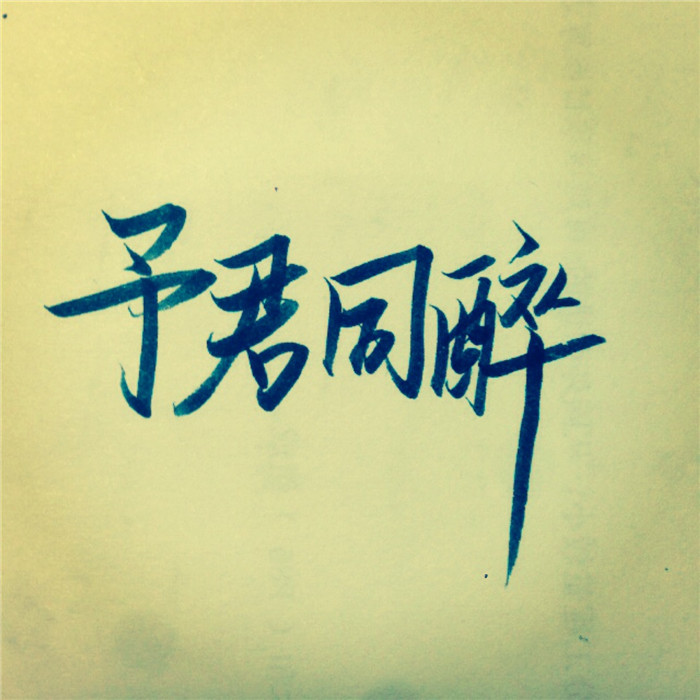 予君同醉